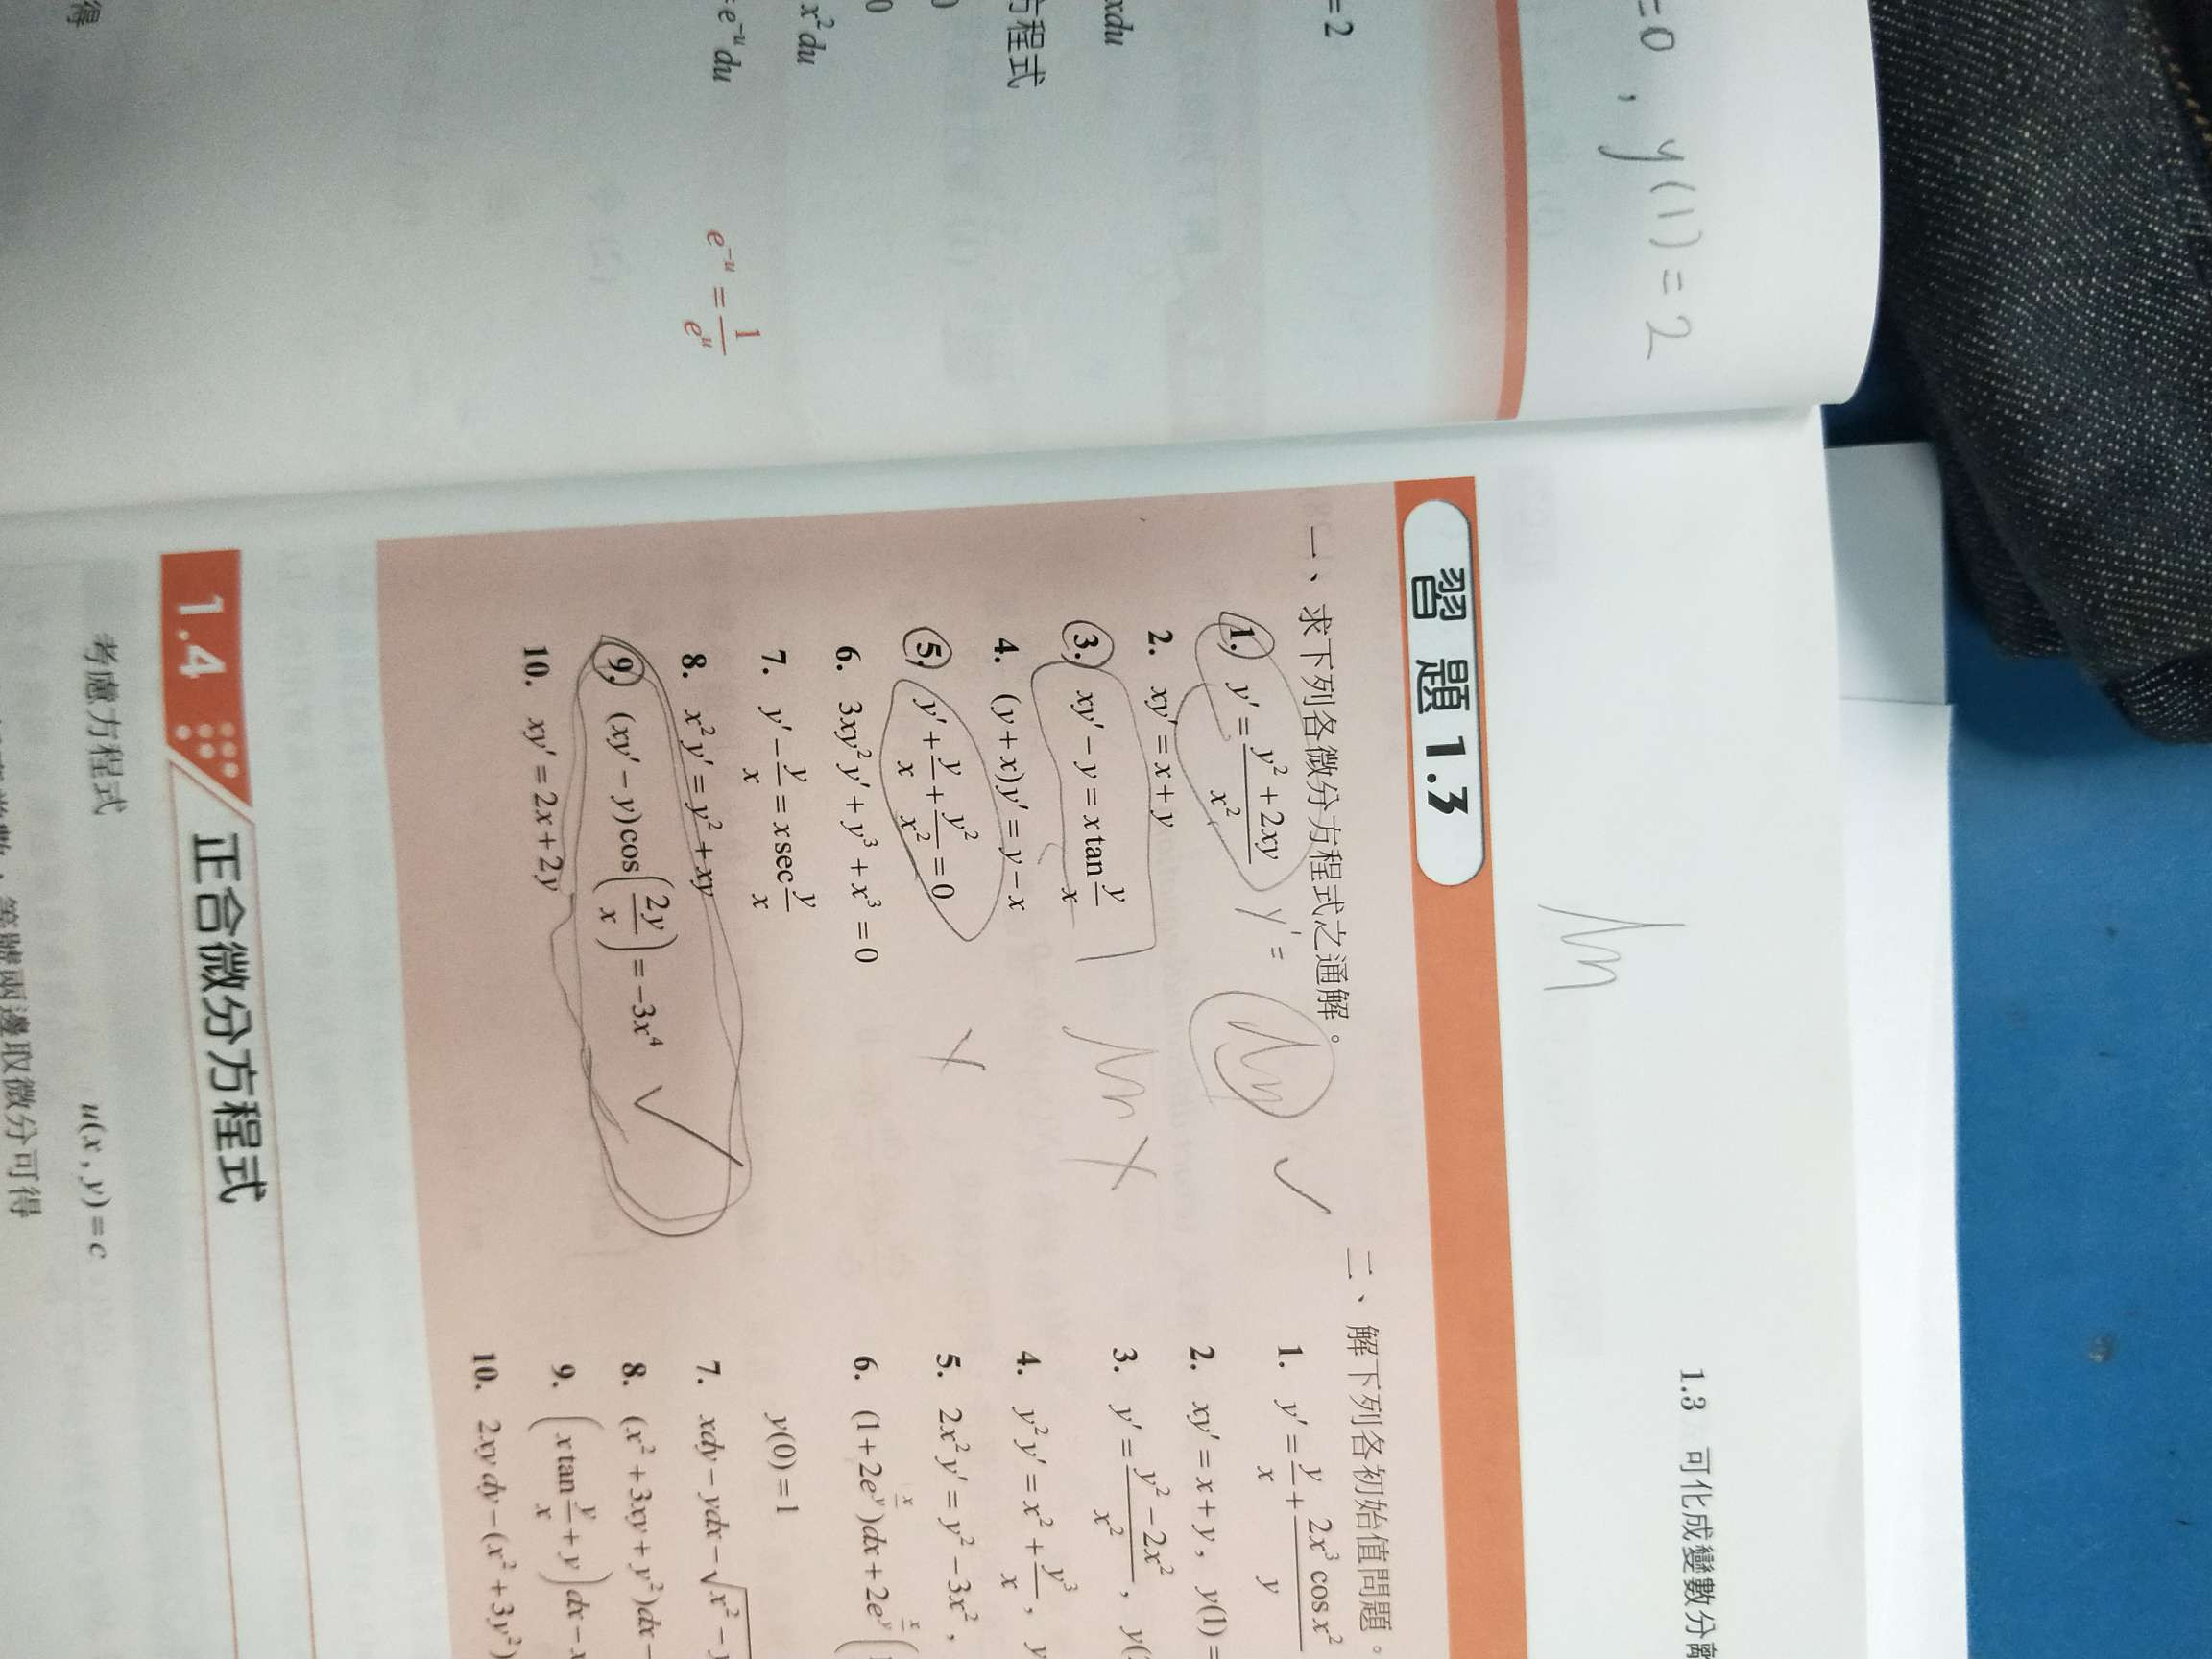 =0 , y(1)=2
=2
xdu
方程式
x²du
=e⁻ᵘdu
e⁻ᵘ = 1/eᵘ
得
1.3 可化成變數分離
ln
習題 1.3
一、求下列各微分方程式之通解。
1. y' = (y² + 2xy)/x² y' =
2. xy' = x + y
3. xy' − y = x tan y/x
4. (y + x)y' = y − x
5. y' + y/x + y²/x² = 0
6. 3xy²y' + y³ + x³ = 0
7. y' − y/x = x sec y/x
8. x²y' = y² + xy
9. (xy' − y)cos(2y/x) = −3x⁴
10. xy' = 2x + 2y
二、解下列各初始值問題。
1. y' = y/x + 2x³cos x²/y
2. xy' = x + y, y(1) =
3. y' = (y² − 2x²)/x², y(
4. y²y' = x² + y³/x, y
5. 2x²y' = y² − 3x²,
6. (1 + 2e^(x/y))dx + 2e^(x/y)(
y(0) = 1
7. xdy − ydx − √x² −
8. (x² + 3xy + y²)dx −
9. (x tan y/x + y)dx −
10. 2xy dy − (x² + 3y²)
1.4 正合微分方程式
考慮方程式
u(x, y) = c
等號兩邊取微分可得